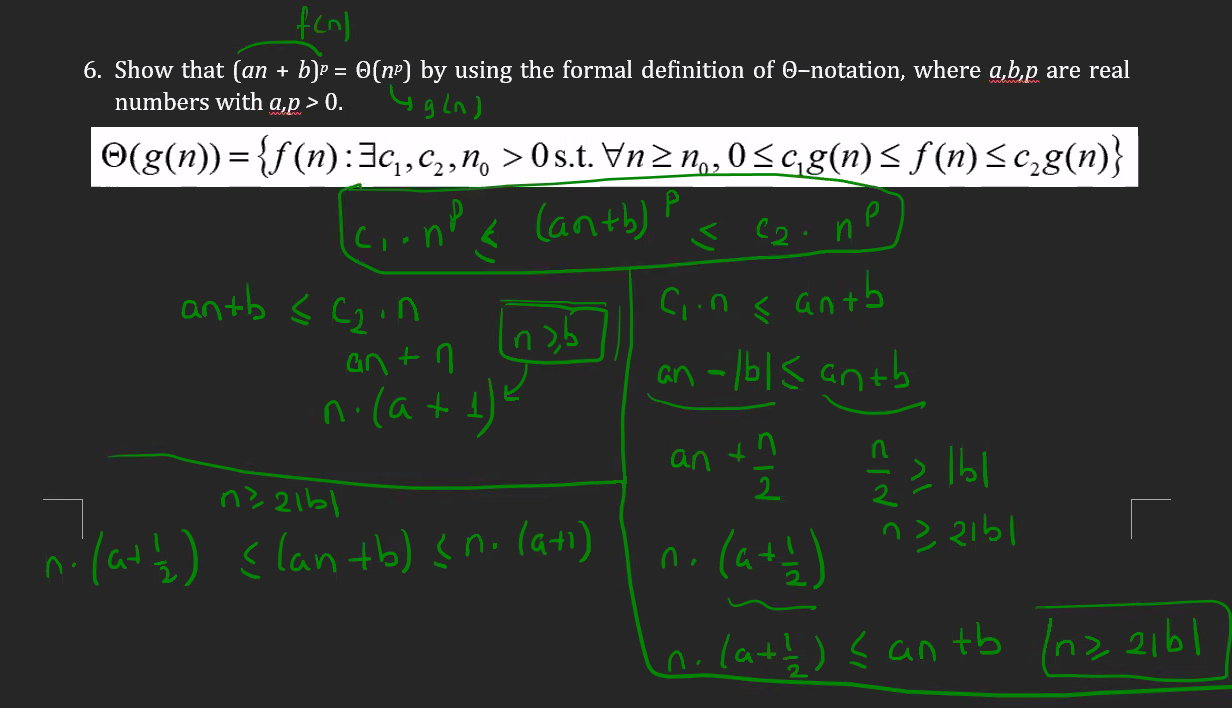 f(n)
6. Show that (an + b)ᵖ = Θ(nᵖ) by using the formal definition of Θ−notation, where a,b,p are real
numbers with a,p > 0.
g(n)
Θ(g(n)) = {f(n) : ∃c₁, c₂, n₀ > 0 s.t. ∀n ≥ n₀, 0 ≤ c₁g(n) ≤ f(n) ≤ c₂g(n)}
c₁ · nᵖ ≤ (an+b)ᵖ ≤ c₂ · nᵖ
an+b ≤ c₂ · n
an + n
n ≥ b
n · (a + 1)
c₁ · n ≤ an+b
an − |b| ≤ an+b
an + n/2
n/2 ≥ |b|
n ≥ 2|b|
n · (a + 1/2)
n · (a + 1/2) ≤ an + b
n ≥ 2|b|
n ≥ 2|b|
n · (a + 1/2) ≤ (an + b) ≤ n · (a+1)